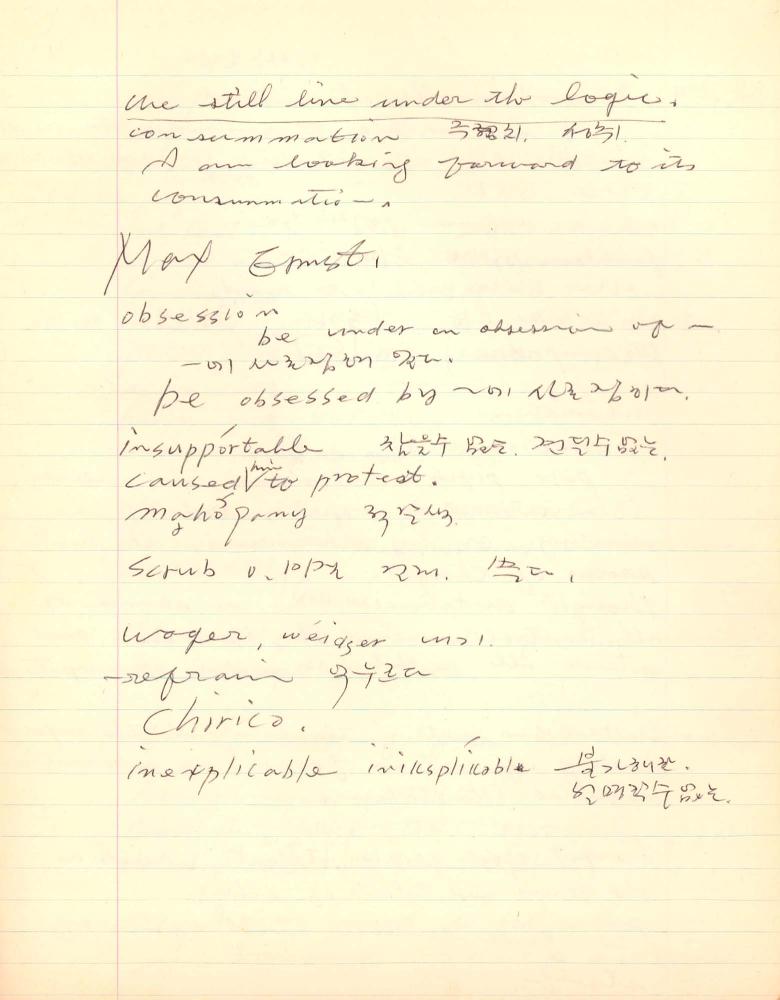 the still line under the logic.
consummation 성취.
I am looking forward to its
consummation.
Max Ernst.
obsession
be under an obsession of ~
~에 사로잡혀 있다.
be obsessed by ~에 사로잡히다.
insuppórtable 참을수 없는. 견딜수없는.
caused him to protest.
mahogany 적갈색
scrub v. 문질러
wager, wéidʒer 내기.
-refrain 억누르다
Chirico.
inexplicable iniksplíkəble 불가해한.
설명할수 없는.